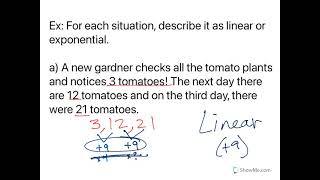 Ex: For each situation, describe it as linear or
exponential.
a) A new gardner checks all the tomato plants
and notices 3 tomatoes! The next day there
are 12 tomatoes and on the third day, there
were 21 tomatoes.
3, 12, 21
+9 +9
Linear
(+9)
ShowMe.com